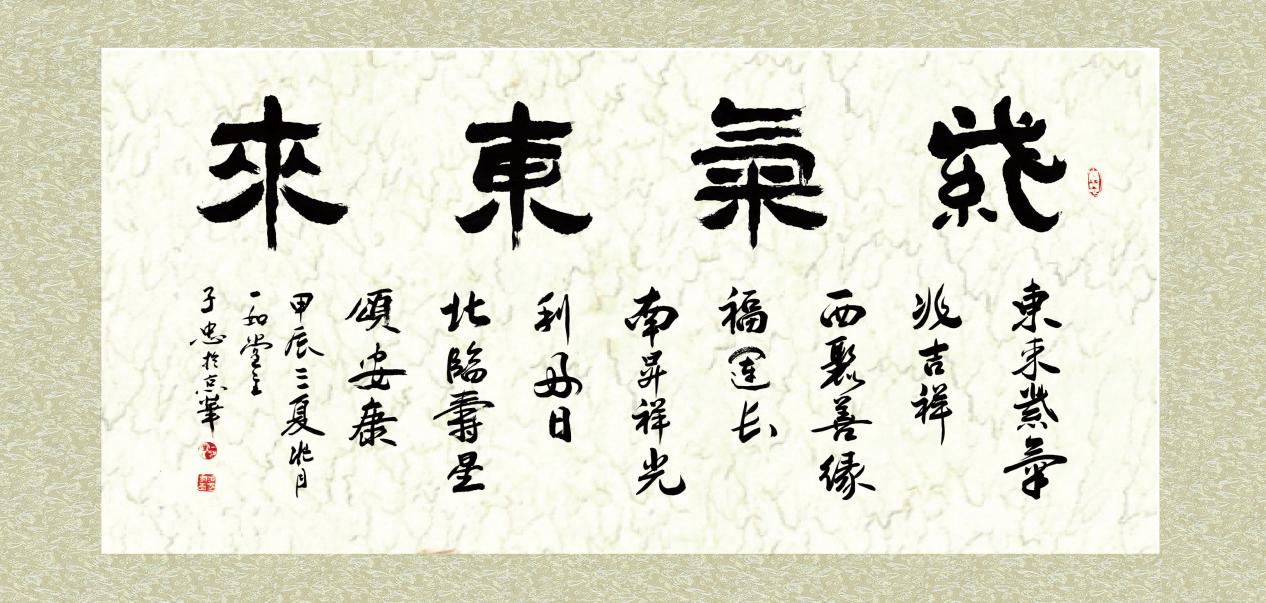 紫氣東來
東來紫氣
兆吉祥
西聚善緣
福運长
南昇祥光
利日
北臨壽星
頌安康
甲辰三夏月
一如堂主
子忠於京華